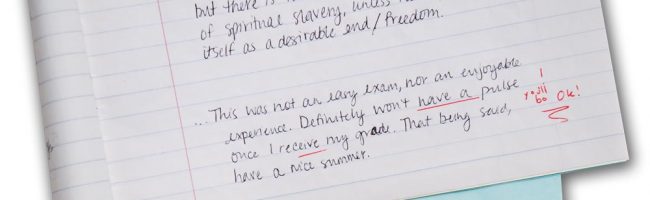 but there is
of spiritual slavery, unless
itself as a desirable end/freedom.
...This was not an easy exam, nor an enjoyable
experience. Definitely won't have a pulse
once I receive my grade. That being said,
have a nice summer.
!
you'll
be Ok!